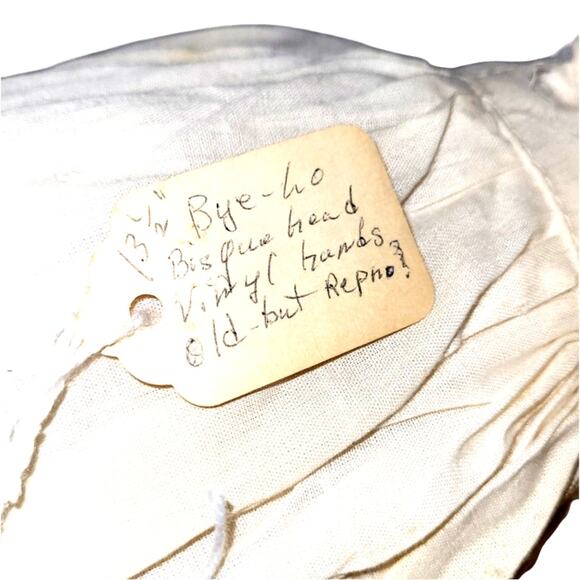 13 1/2" Bye-Lo
Bisque head
Vinyl hands
Old-but Repro?